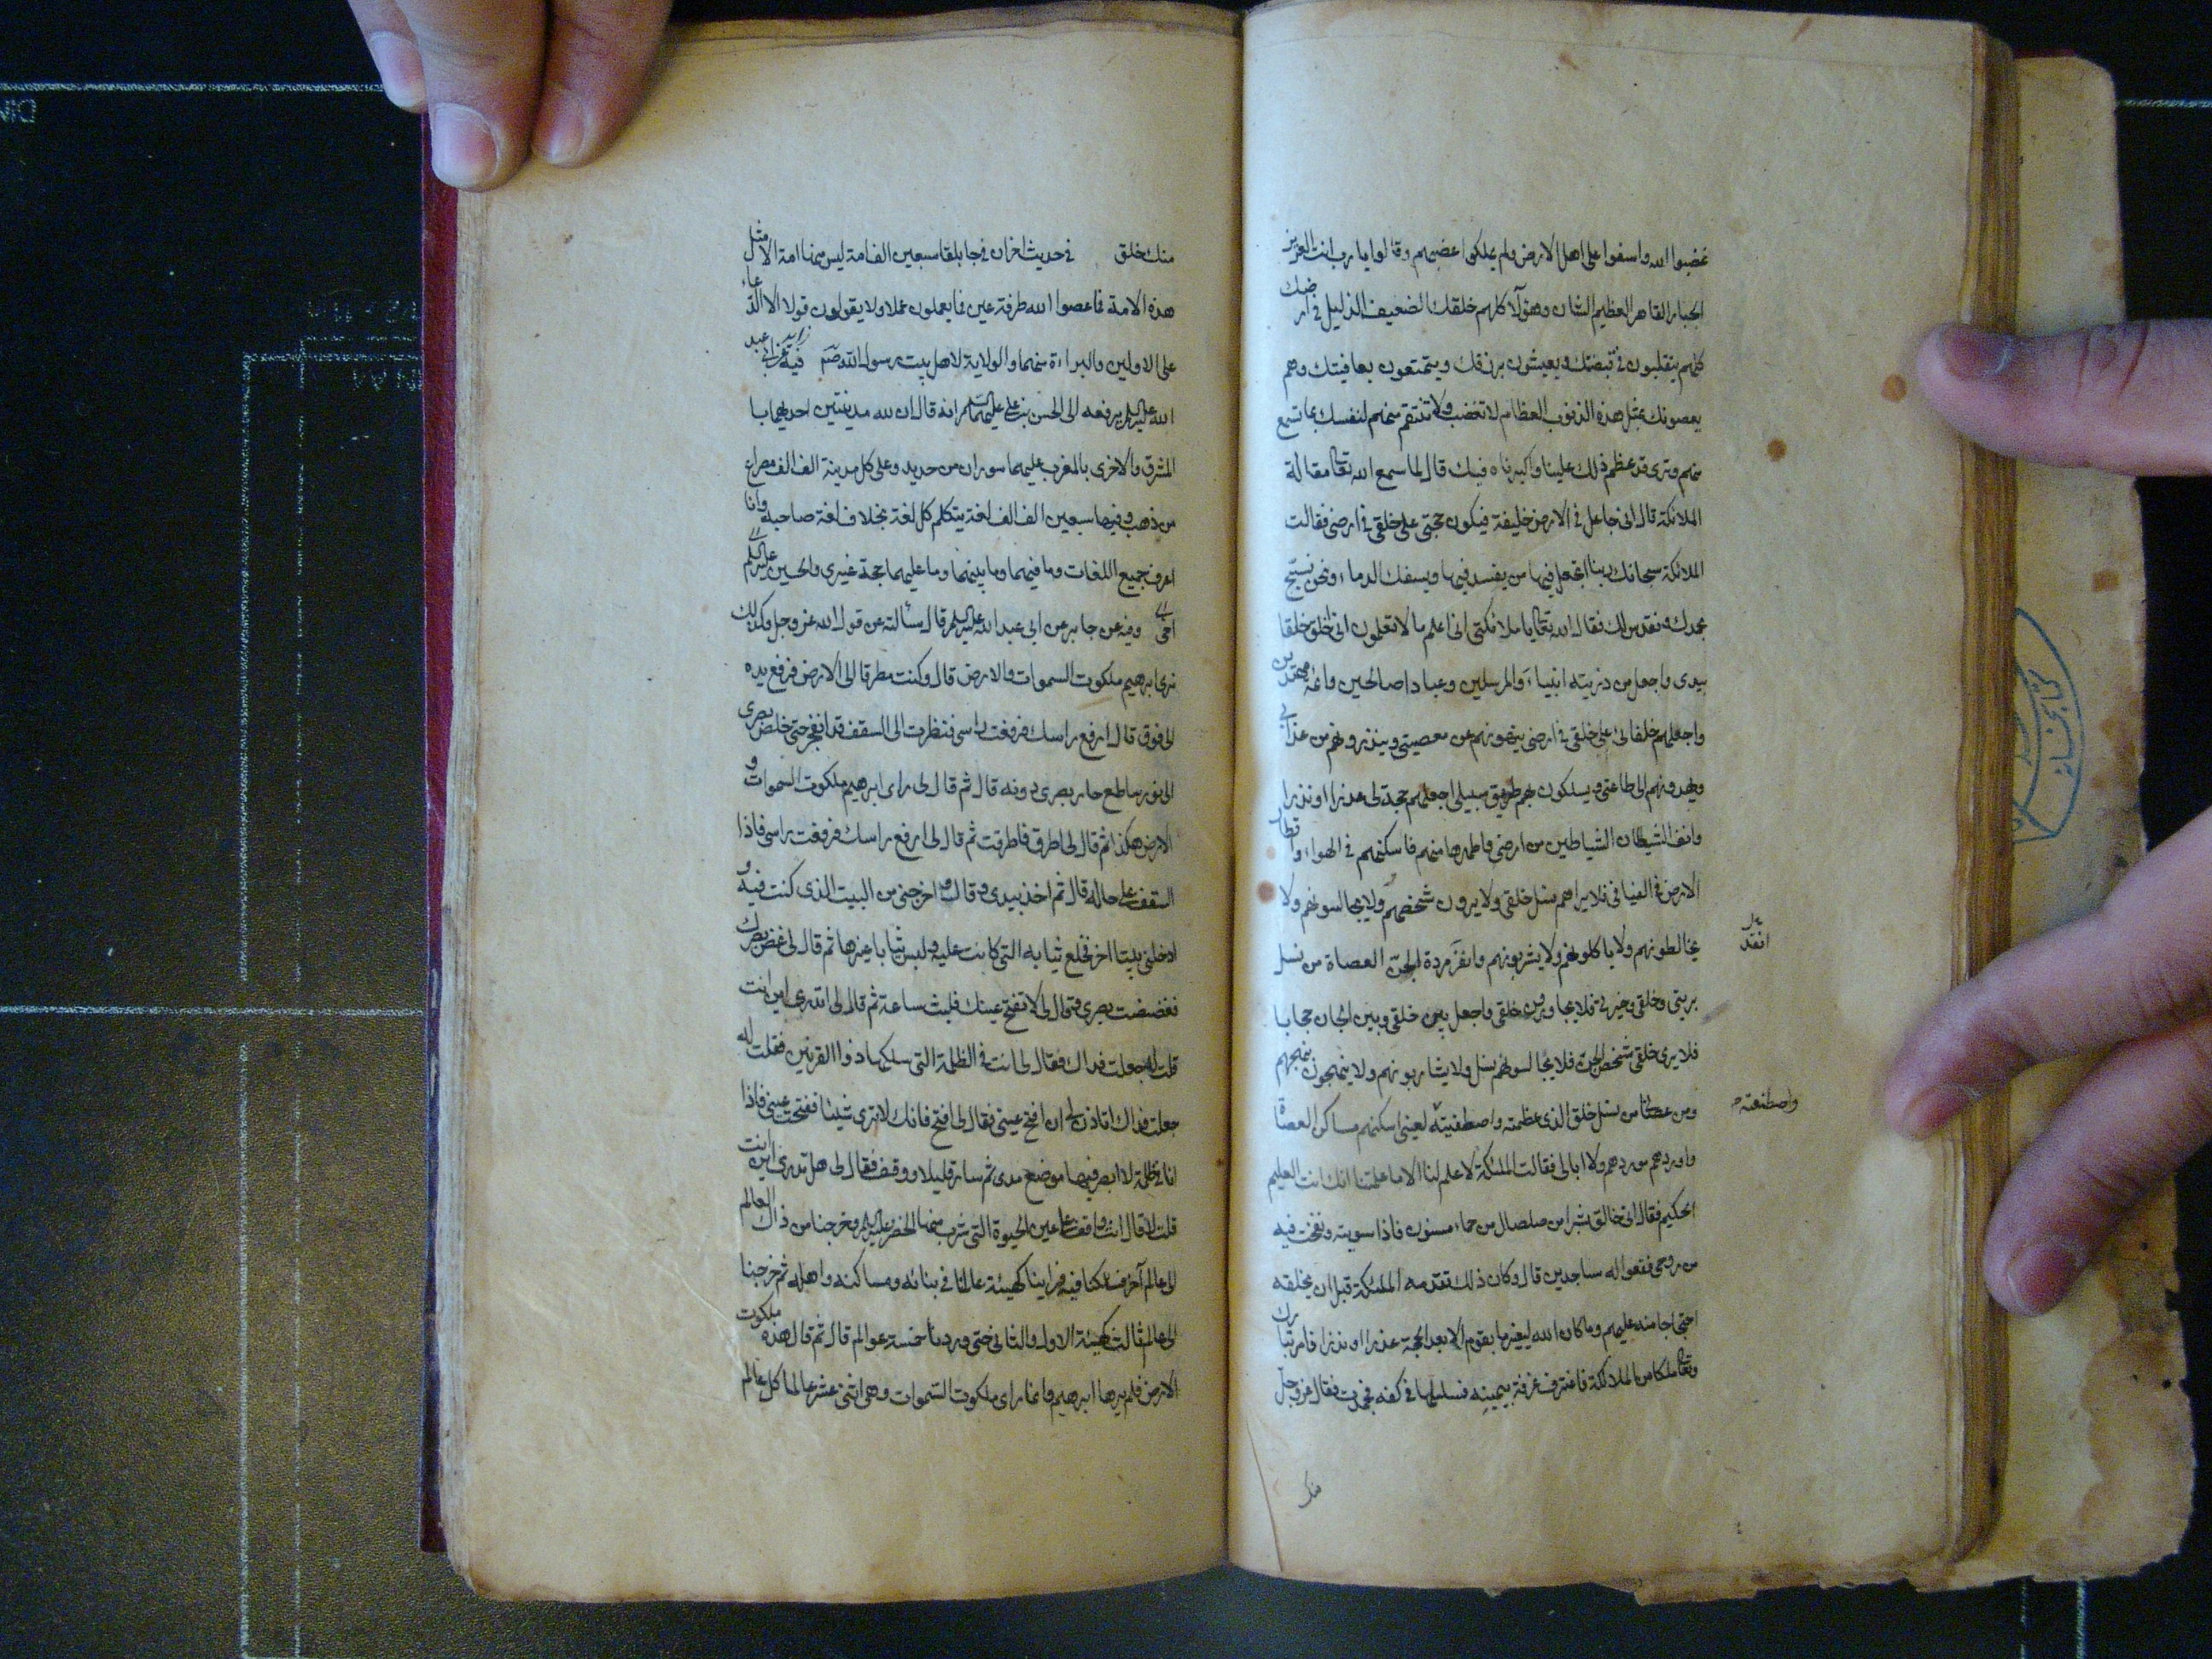 غضبوا الله واسفوا على اهل الارض ولم يملكوا غضبهم وقالوا يا رب انت العزيز
الجبار القاهر العظيم الشان وهؤلآ كلهم خلقك الضعيف الذليل في ارضك
كلهم يتقلبون في قبضتك ويعيشون برزقك ويتمتعون بعافيتك وهم
يعصونك بمثل هذه الذنوب العظام لا تغضب ولا تنتقم منهم لنفسك بما تسمع
منهم وترى قد عظم ذلك علينا واكبرناه فيك قال لما سمع الله تعالى مقالة
الملائكة قال انى جاعل في الارض خليفة فيكون حجتى على خلقى في ارضى فقالت
الملائكة سبحانك ربنا اتجعل فيها من يفسد فيها ويسفك الدماء ونحن نسبح
بحمدك ونقدس لك فقال الله تعالى يا ملائكتى انى اعلم ما لا تعلمون انى اخلق خلقا
بيدى واجعل من ذريته انبياء والمرسلين وعبادا صالحين وائمة مهتدين
واجعلهم خلفائى على خلقى في ارضى ينهونهم عن معصيتى وينذرونهم من عذابى
ويهدونهم الى طاعتى ويسلكون بهم طريق سبيلى اجعلهم حجة لى عذرا او نذرا
وانف الشيطان الشياطين من ارضى فاطهرها منهم فاسكنهم في الهواء واقطار
الارض في الفيافى فلا يراهم نسل خلقى ولا يرون شخصهم ولا يجالسونهم ولا
يخالطونهم ولا ياكلونهم ولا يشربونهم وانفر مردة الجن العصاة من نسل
انقل
بريتى وخلقى وخيرتى فلا يجاورون خلقى واجعل بين خلقى وبين الجان حجابا
فلا يرى خلقى شخص الجن فلا يجالسونهم نسل ولا يشاربونهم ولا ينهجون نهجهم
ومن عصانى من نسل خلق الذى عظمته واصطفيته لعينى اسكنهم مساكن العصاة
واصطنعته
واوردهم موردهم ولا ابالى فقالت الملئكة لا علم لنا الا ما علمتنا انك انت العليم
الحكيم فقال انى خالق بشرا من صلصال من حماء مسنون فاذا سويته ونفخت فيه
من روحى فقعوا له ساجدين قال وكان ذلك تقدمه الملئكة قبل ان يخلقه
احتجاجا منه عليهم وما كان الله ليغير ما بقوم الا بعد الحجة عذرا او نذرا فامر تبارك
وتعالى ملكا من الملائكة فاغترف غرفة بيمينه فسلبها في كفه فجمدت فقال عز وجل
منك
منك خلق في حديث اخران في جابلقا سبعين الف امة ليس منها امة الا مثل
هذه الامة فما عصوا الله طرفة عين فما يعملون عملا ولا يقولون قولا الا الدعاء
على الاولين والبراءة منهما والولاية لاهل بيت رسول الله فيه عن ابى عبد
الله يرفعه الى الحسن بن على عليهما السلم انه قال ان لله مدينتين احديهما با
المشرق والاخرى بالمغرب عليهما سوران من حديد وعلى كل مدينة الف الف مصراع
من ذهب وفيها سبعين الف الف لغة يتكلم كل لغة بخلاف لغة صاحبه وانا
اعرف جميع اللغات وما فيهما وما بينهما وما عليهما حجة غيرى والحسين
اخى وفيه عن جابر عن ابى عبد الله قال سألته عن قول الله عز وجل وكذلك
نرى ابرهيم ملكوت السموات والارض قال وكنت مطرقا الى الارض فرفع يده
الى فوق قال ارفع راسك فرفعت راسى فنظرت الى السقف قد انفجر حتى خلص بصرى
الى نور ساطع حار بصرى دونه قال ثم قال لى راى ابرهيم ملكوت السموات و
الارض هكذا ثم قال لى اطرق فاطرقت ثم قال لى ارفع راسك فرفعت راسى فاذا
السقف على حاله قال ثم اخذ بيدى وقال و اخرجنى من البيت الذى كنت فيه و
ادخلنى بيتا اخر فخلع ثيابه التى كانت عليه ولبس ثيابا غيرها ثم قال لى غض بصرك
فغضضت بصرى وقال لى لا تفتح عينك فلبث ساعة ثم قال لى اتدرى اين انت
قلت له جعلت فداك فقال لى انت في الظلمة التى سلكها ذوا القرنين فقلت له
جعلت فداك اتاذن لى ان افتح عينى فقال لى افتح فانك لا ترى شيئا ففتحت عينى فاذا
انا في ظلمة لا ابصر فيها موضع قدمى ثم سار قليلا ووقف فقال لى هل تدرى اين انت
قلت لا قال انت واقف على عين الحيوة التى شرب منها الخضر وخرجنا من ذاك العالم
الى عالم آخر فسلكنا فيه فراينا كهيئة عالمنا في بنائه ومساكنه واهله ثم خرجنا
الى عالم ثالث كهيئة الاول والثانى حتى وردنا خمسة عوالم قال ثم قال هذه ملكوت
الارض فلم يرها ابرهيم وانما راى ملكوت السموات وهى اثنى عشر عالما كل عالم